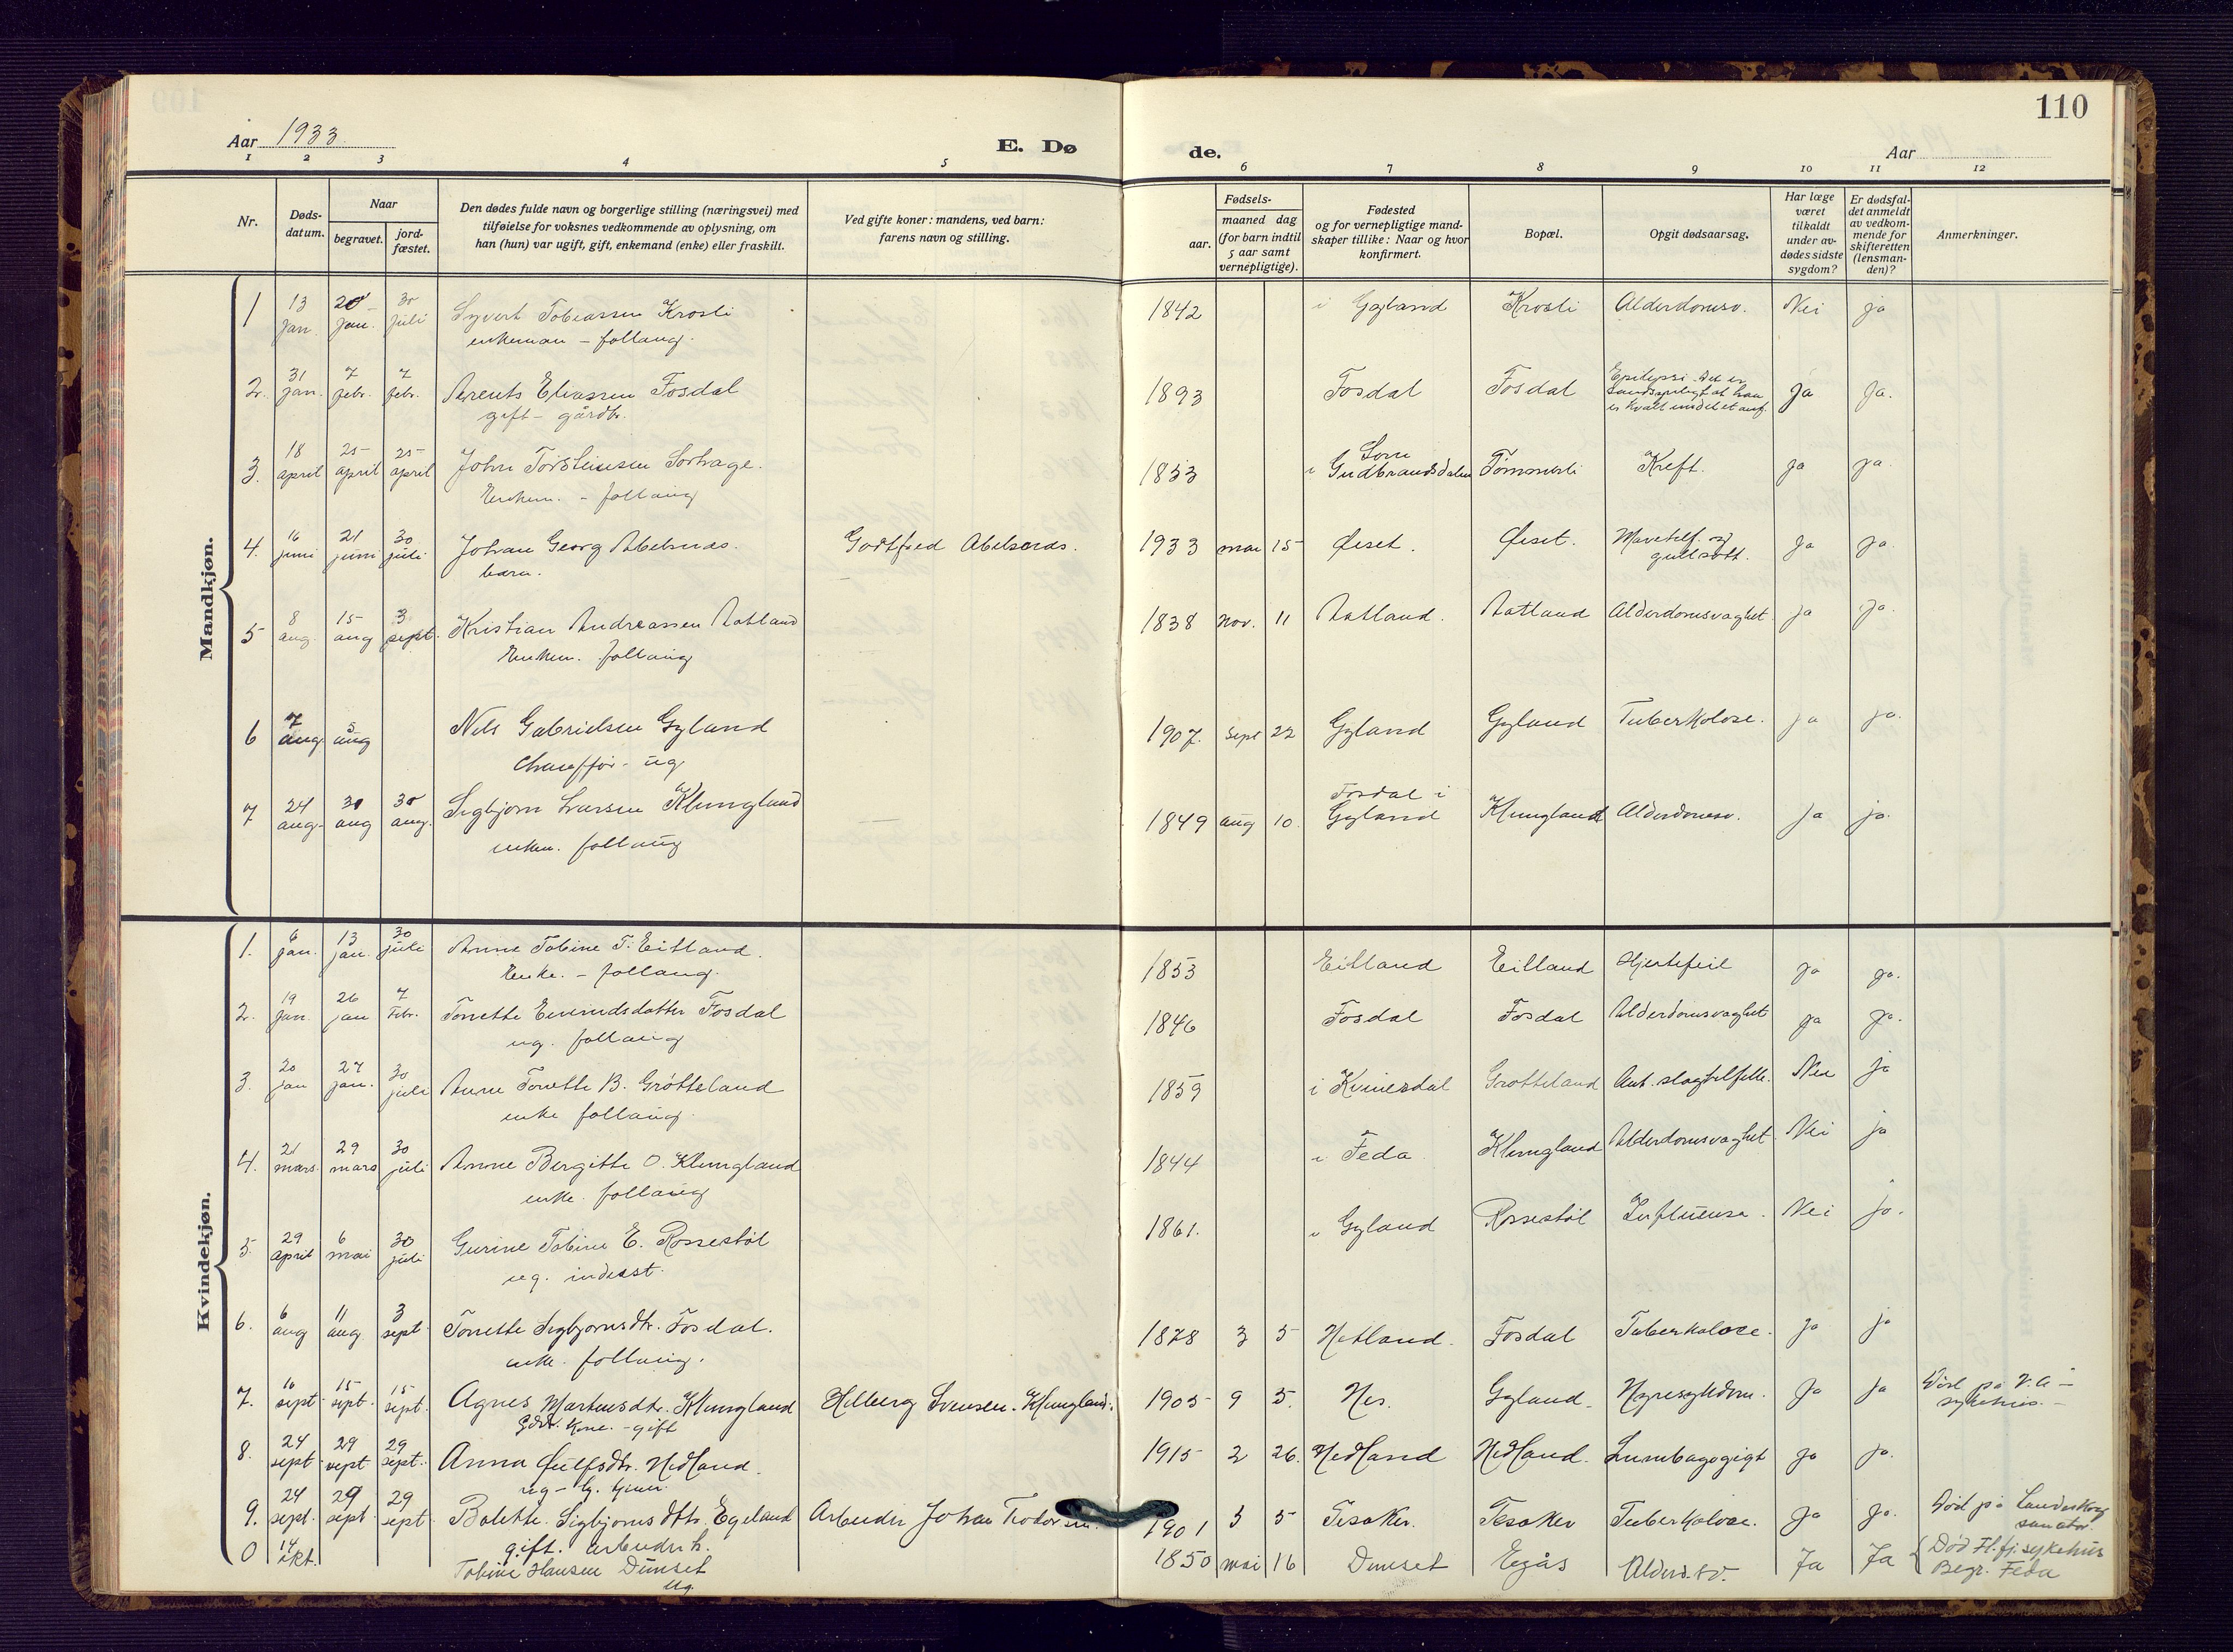 110
Aar 1933
E. Dø
de.
Aar
1 2 3 4 5 6 7 8 9 10 11 12
Nr.
Døds-
datum.
Naar
begravet.
jord-
fæstet.
Den dødes fulde navn og borgerlige stilling (næringsvei) med
tilføielse for voksnes vedkommende av oplysning, om
han (hun) var ugift, gift, enkemand (enke) eller fraskilt.
Ved gifte koner: mandens, ved barn:
farens navn og stilling.
Fødsels-
aar.
maaned dag
(for barn indtil
5 aar samt
vernepligtige).
Fødested
og for vernepligtige mand-
skaper tillike: Naar og hvor
konfirmert.
Bopæl.
Opgit dødsaarsag.
Har læge
været
tilkaldt
under av-
dødes sidste
sygdom?
Er dødsfal-
det anmeldt
av vedkom-
mende for
skifteretten
(lensman-
den)?
Anmerkninger.
Mandkjøn.
1 13 jan. 20 jan. 30 juli Syvert Tobiassen Krosli 1842 i Gyland Krosli Alderdomsv. Nei ja
enkeman - follaug.
2. 31 jan. 7 febr. 7 febr. Arents Eliassen Fosdal 1893 Fosdal Fosdal Epilepsi. Det er sandsynligt at han er kvalt under et anf. ja ja.
gift - gårdbr.
3. 18 april 25 april 25 april John Torsteinsen Sortrage. 1853 i Lom Gudbrandsdalen Tømmerli Kreft. ja ja.
Enkem. - follaug
4. 16 juni 21 juni 30 juli Johan Georg Abelsnes. Godtfred Abelsnes. 1933 mai 15 Øiset. Øiset. Mavetilf. og gullsott. ja ja.
barn.
5 8 aug. 15 aug 3 sept. Kristian Andreassen Aatland 1838 Nov. 11 Aatland. Aatland Alderdomsvaghet. ja ja.
Enkem. follaug
6 7 aug. aug Nils Gabrielsen Gyland 1907. Sept 22 Gyland Gyland Tuberkolose. ja ja.
Chauffør - ug.
7 24 aug. 30 aug 30 aug. Sigbjørn Larsen Klungland 1849 aug 10. Fosdal i Gyland Klungland Alderdomsv. ja ja.
enkem. follaug
Kvindekjøn.
1. 6 jan. 13 jan. 30 juli Anne Tobine T. Eitland. 1853 Eitland Eitland Hjertefeil ja ja.
Enke. - follaug.
2. 19 jan. 26 jan 7 Febr. Tonette Eivindsdatter Fosdal 1846 Fosdal Fosdal Alderdomsvaghet ja ja.
ug. follaug
3. 20 jan 27 jan. 30 juli Anne Tonette B. Grøtteland 1859 i Kvinesdal Grøtteland Ant. slagtilfelle. Nei ja
enke follaug.
4. 21 mars. 29 mars 30 juli Anne Bergitte O. Klungland 1844 i Feda Klungland Alderdomsvaghet. Nei ja
enke. follaug
5. 29 april 6 mai 30 juli Gurine Tobine E. Rossestøl 1861. i Gyland Rossestøl Influensa. Nei ja.
ug. inderst.
6. 6 aug 11 aug. 3 sept. Tonette Sigbjørnsdtr. Fosdal. 1878 3 5 Hetland. Fosdal Tuberkolose. ja ja
enke. follaug.
7. 10 sept. 15 sept. 15 sept. Agnes Martinsdtr. Klungland Hilberg Svensen. Klungland. 1905 9 5. Nes. Gyland. Nyresykdom. ja ja Død på V.A - sykehus. -
Gdbr. Kone. - gift
8. 24 sept. 29 sept 29 sept. Anna dtr. Nedland. 1915 2 26. Nedland Nedland. Lumbagogigt ja ja.
ug -
9. 24 sept. 29 sept 29 sept. Bolette Sigbjørnsdtr. Egeland Arbeider Johan Teodorsen. 1901 3 5 Tesaker. Tesaker Tuberkolose. ja ja. Død på Landeskog sanator.
gift.
0 14 okt. Tobine Hansen Dunset 1850 mai 16 Dunset Egås Alderd. sv. Ja Ja Død Fl. fj. sykehus
ug. Begr. Feda